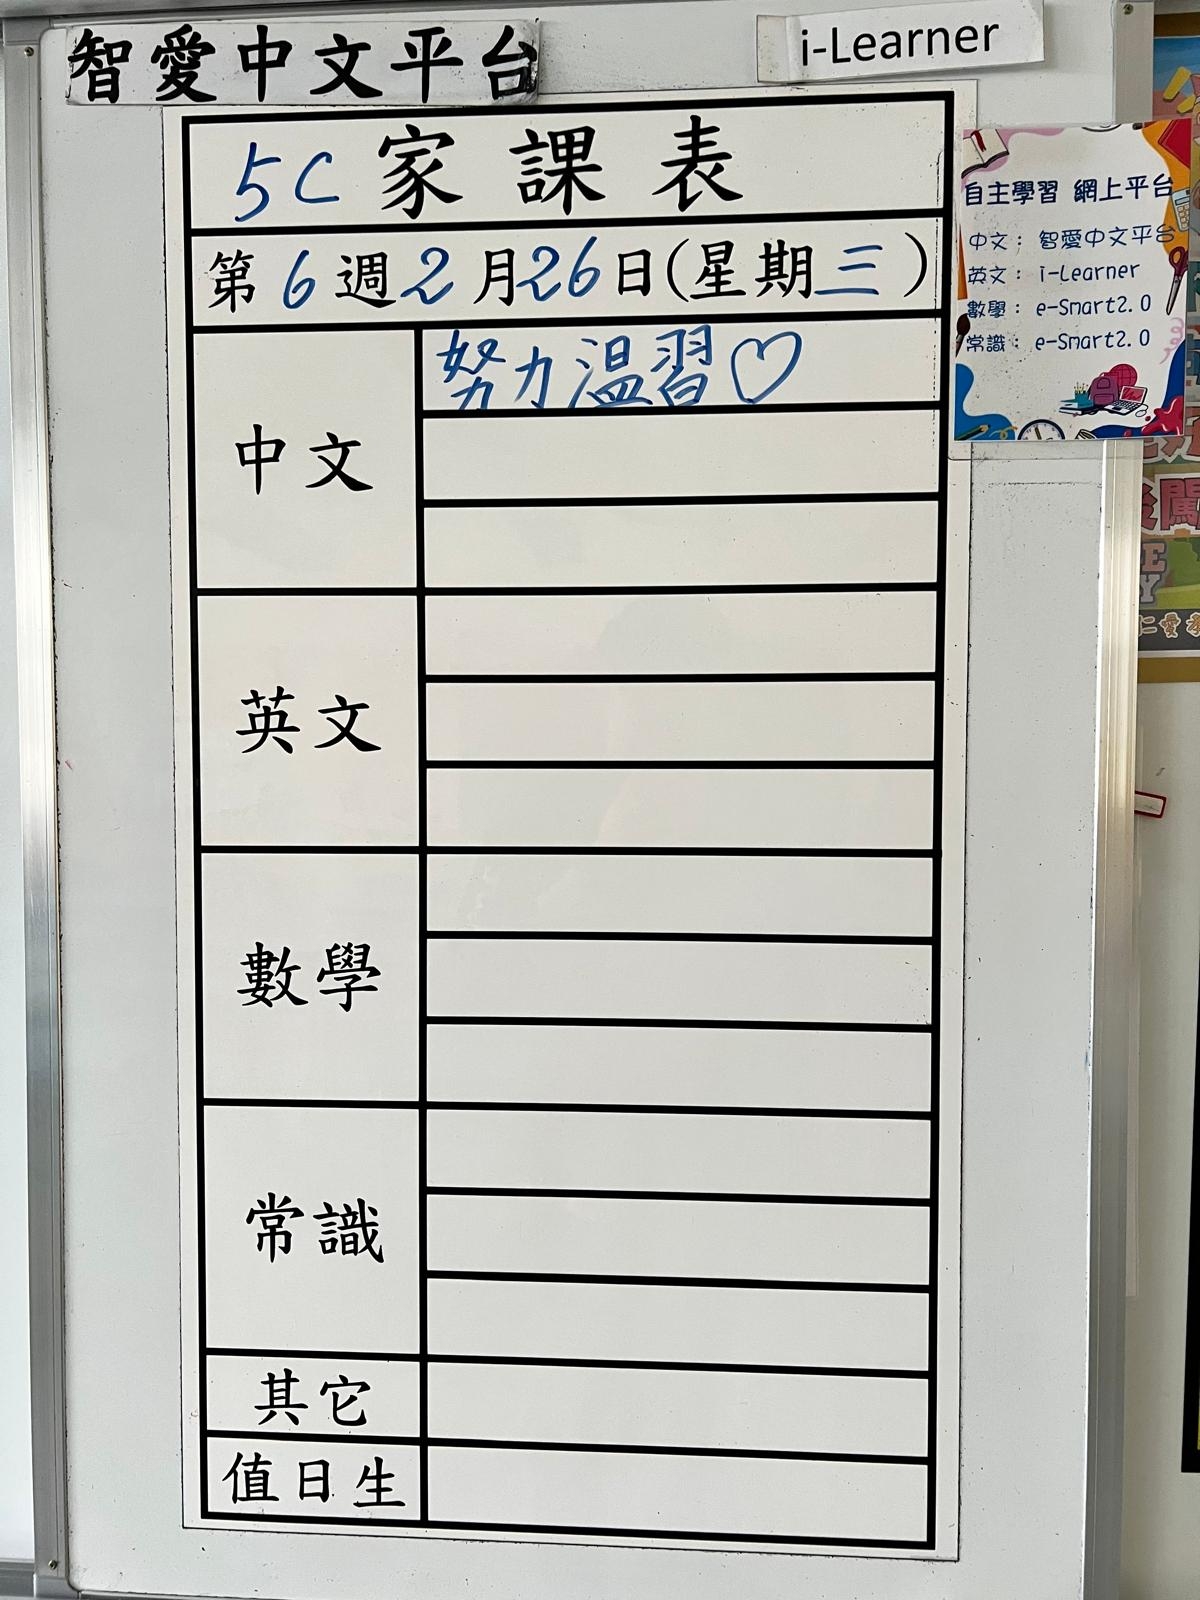 智愛中文平台
i-Learner
5C 家課表
第6週2月26日(星期三)
中文
努力溫習♡
英文
數學
常識
其它
值日生
自主學習 網上平台
中文：智愛中文平台
英文：i-Learner
數學：e-Smart2.0
常識：e-Smart2.0
闖
仁愛